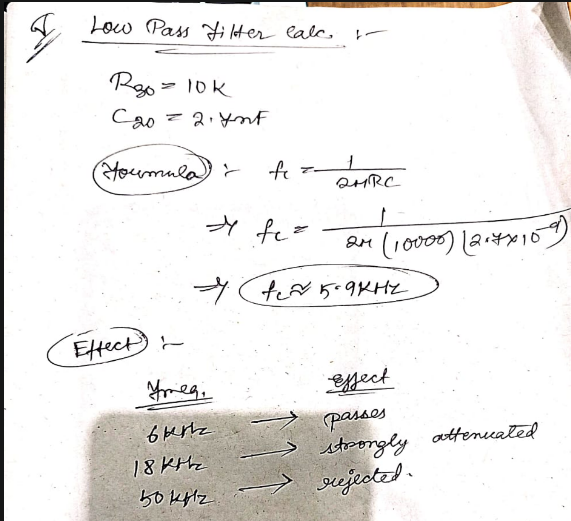 Low Pass Filter calc. :-
R30 = 10K
C20 = 2.7nF
Formula :- fc = 1/2πRC
⇒ fc = 1/2π(10000)(2.7×10^-9)
⇒ fc ≈ 5.9KHz
Effect :-
Freq. effect
6KHz → passes
18KHz → strongly attenuated
50KHz → rejected.